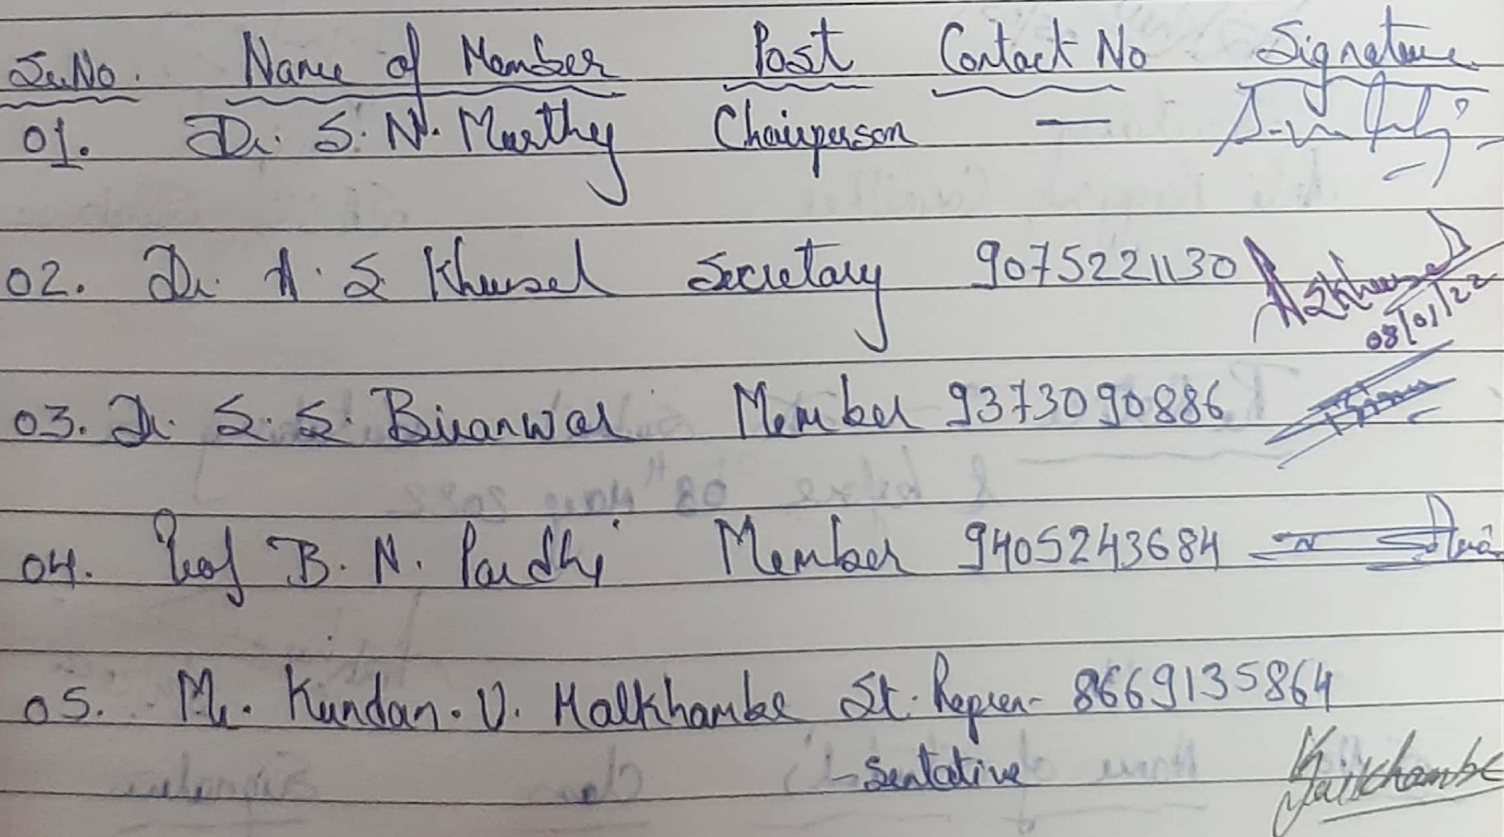 Sr.No. Name of Member Post Contact No Signature
01. Dr. S. N. Murthy Chairperson —
02. Dr. A. S. Khursel Secretary 9075221130
08/01/22
03. Dr. S. S. Biranwar Member 9373090886
04. Prof B. N. Pardhi Member 9405243684
05. Mr. Kundan. V. Malkhambe St. Repre- 8669135864
-sentative